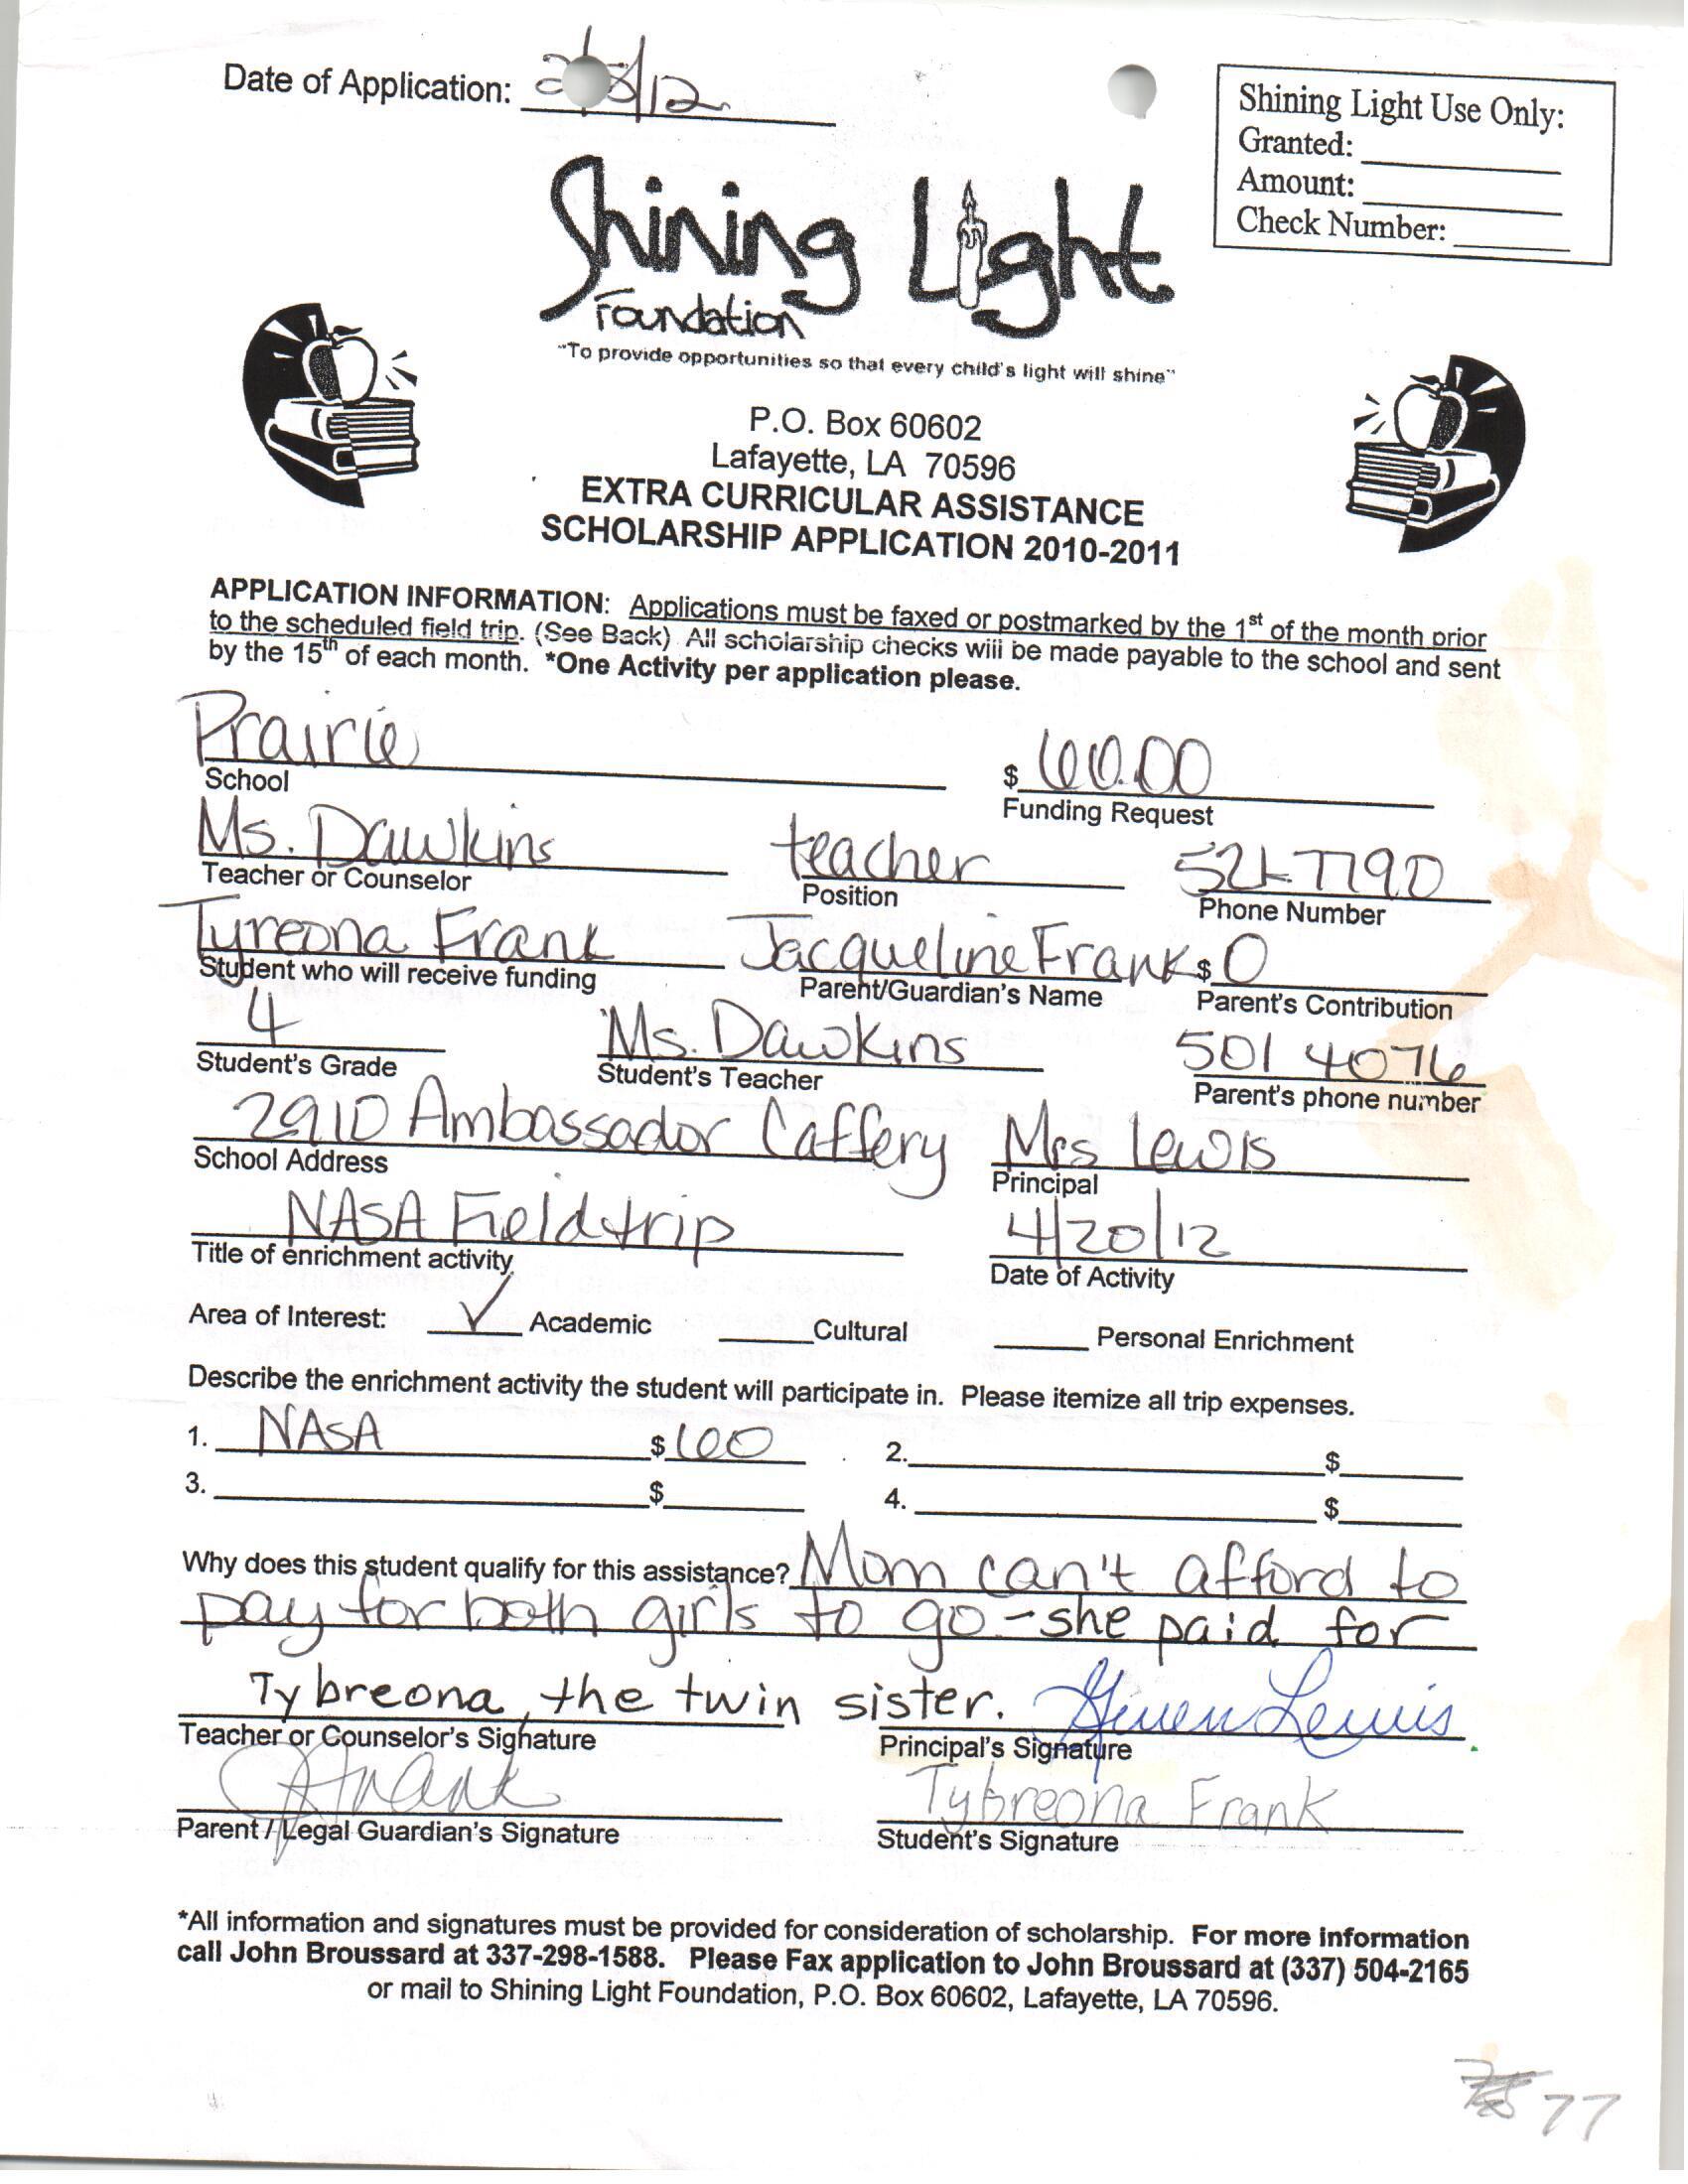 Date of Application: 2/8/12
Shining Light Use Only:
Granted:
Amount:
Check Number:
Shining Light
Foundation
"To provide opportunities so that every child's light will shine"
P.O. Box 60602
Lafayette, LA 70596
EXTRA CURRICULAR ASSISTANCE
SCHOLARSHIP APPLICATION 2010-2011
APPLICATION INFORMATION: Applications must be faxed or postmarked by the 1st of the month prior
to the scheduled field trip. (See Back) All scholarship checks will be made payable to the school and sent
by the 15th of each month. *One Activity per application please.
Prairie $ 60.00
School Funding Request
Ms. Dawkins teacher 521-7790
Teacher or Counselor Position Phone Number
Tyreona Frank Jacqueline Frank $ 0
Student who will receive funding Parent/Guardian's Name Parent's Contribution
4 Ms. Dawkins 501 4076
Student's Grade Student's Teacher Parent's phone number
2910 Ambassador Caffery Mrs Lewis
School Address Principal
NASA Fieldtrip 4/20/12
Title of enrichment activity Date of Activity
Area of Interest: ✓ Academic Cultural Personal Enrichment
Describe the enrichment activity the student will participate in. Please itemize all trip expenses.
1. NASA $ 60 2. $
3. $ 4. $
Why does this student qualify for this assistance? Mom can't afford to
pay for both girls to go - she paid for
Tybreona, the twin sister. Gwen Lewis
Teacher or Counselor's Signature Principal's Signature
J Frank Tybreona Frank
Parent / Legal Guardian's Signature Student's Signature
*All information and signatures must be provided for consideration of scholarship. For more information
call John Broussard at 337-298-1588. Please Fax application to John Broussard at (337) 504-2165
or mail to Shining Light Foundation, P.O. Box 60602, Lafayette, LA 70596.
77